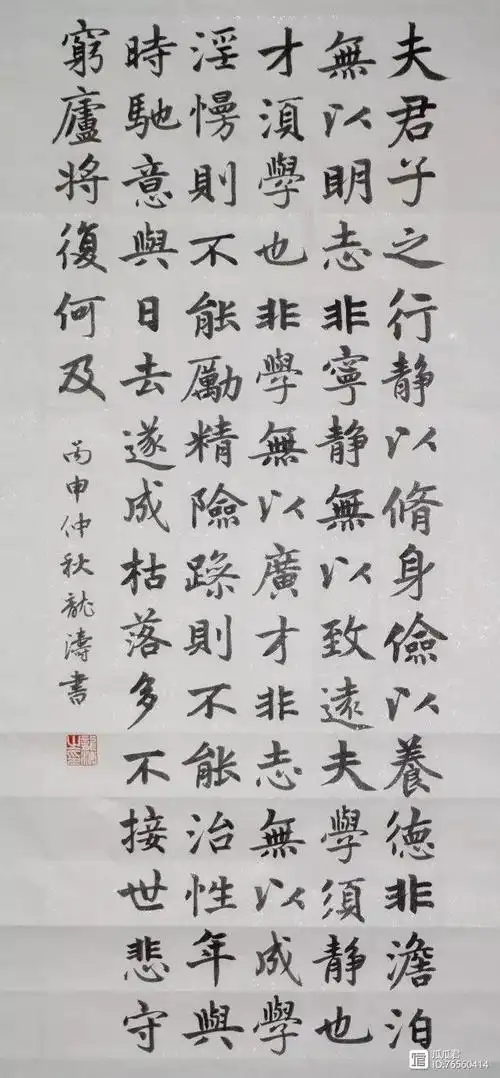 夫君子之行静以脩身儉以養德非澹泊
無以明志非寧静無以致遠夫學須静也
才須學也非學無以廣才非志無以成學
淫慢則不能勵精險躁則不能治性年與
時馳意與日去遂成枯落多不接世悲守
窮廬將復何及
丙申仲秋龍濤書
瓜瓜君
ID:76560414